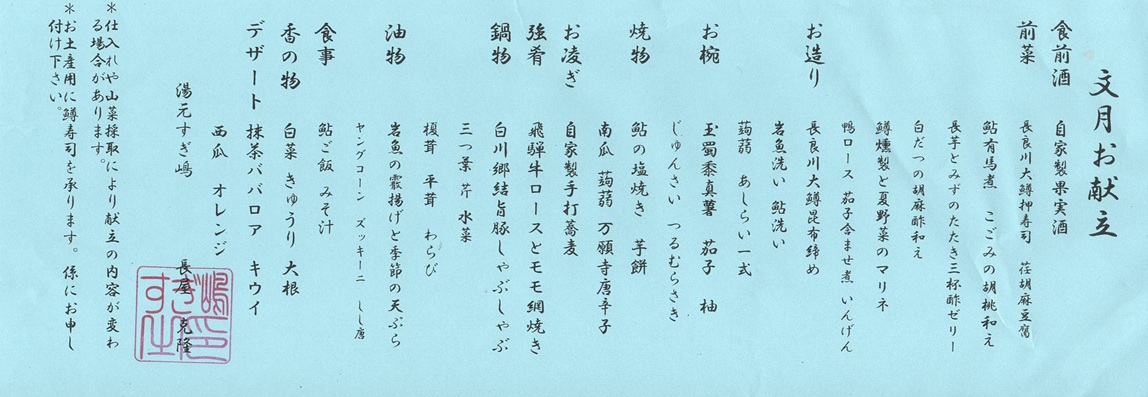 文月お献立
食前酒 自家製果実酒
前菜 長良川大鱒押寿司 荏胡麻豆腐
鮎有馬煮 こごみの胡桃和え
長芋とみずのたたき三杯酢ゼリー
白だつの胡麻酢和え
鱒燻製と夏野菜のマリネ
鴨ロース 茄子含ませ煮 いんげん
お造り 長良川大鱒昆布締め
岩魚洗い 鮎洗い
蒟蒻 あしらい一式
お椀 玉蜀黍真薯 茄子 柚
じゅんさい つるむらさき
焼物 鮎の塩焼き 芋餅
南瓜 蒟蒻 万願寺唐辛子
お凌ぎ 自家製手打蕎麦
強肴 飛騨牛ロースとモモ網焼き
鍋物 白川郷結旨豚しゃぶしゃぶ
三つ葉 芹 水菜
榎茸 平茸 わらび
油物 岩魚の霰揚げと季節の天ぷら
ヤングコーン ズッキーニ しし唐
食事 鮎ご飯 みそ汁
香の物 白菜 きゅうり 大根
デザート 抹茶ババロア キウイ
西瓜 オレンジ
湯元すぎ嶋 長屋 克隆
＊仕入れや山菜採取により献立の内容が変わ
る場合があります。
＊お土産用に鱒寿司を承ります。係にお申し
付け下さい。